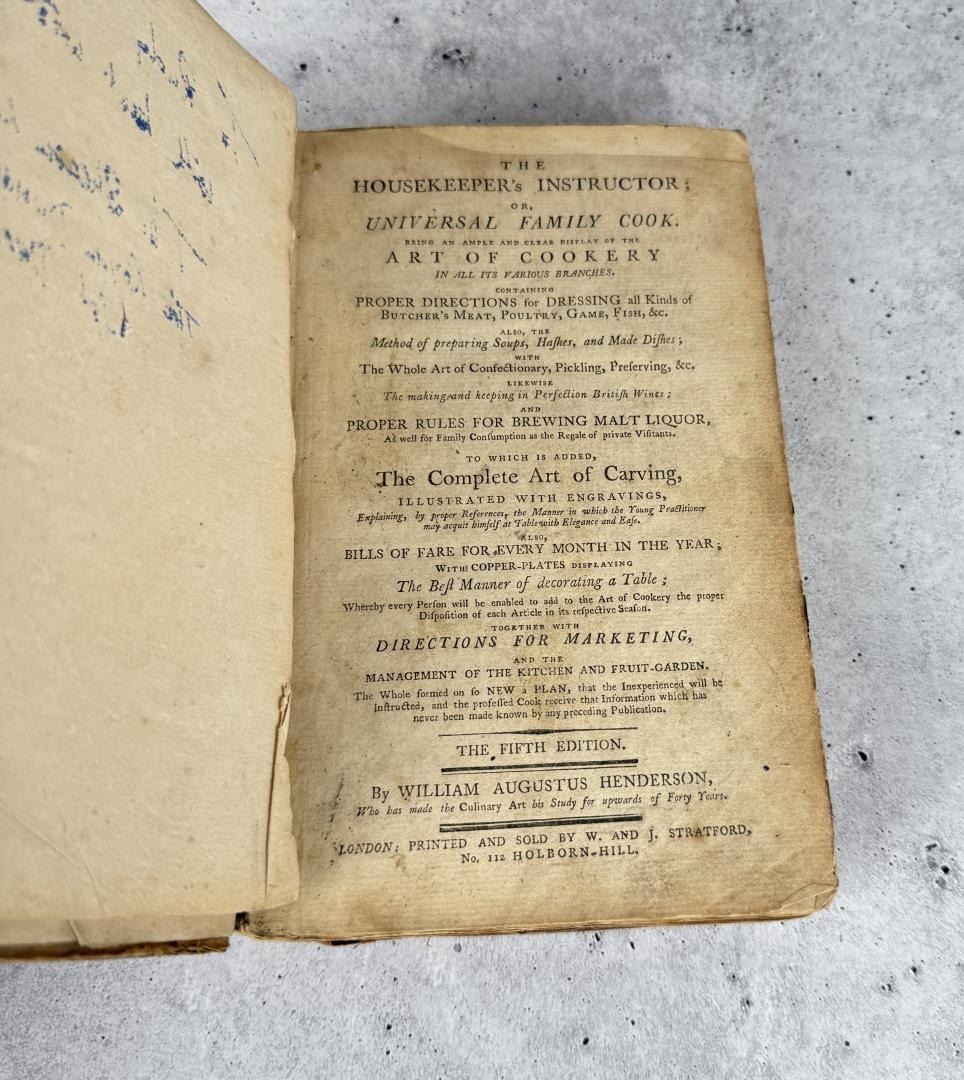 THE
HOUSEKEEPER's INSTRUCTOR;
OR,
UNIVERSAL FAMILY COOK.
BEING AN AMPLE AND CLEAR DISPLAY OF THE
ART OF COOKERY
IN ALL ITS VARIOUS BRANCHES.
CONTAINING
PROPER DIRECTIONS for DRESSING all Kinds of
BUTCHER'S MEAT, POULTRY, GAME, FISH, &c.
ALSO, THE
Method of preparing Soups, Haſhes, and Made Diſhes;
WITH
The Whole Art of Confectionary, Pickling, Preſerving, &c.
LIKEWISE
The making and keeping in Perfection Britiſh Wines;
AND
PROPER RULES FOR BREWING MALT LIQUOR,
As well for Family Conſumption as the Regale of private Viſitants.
TO WHICH IS ADDED,
The Complete Art of Carving,
ILLUSTRATED WITH ENGRAVINGS,
Explaining, by proper References, the Manner in which the Young Practitioner
may acquit himſelf at Table with Elegance and Eaſe.
ALSO,
BILLS OF FARE FOR EVERY MONTH IN THE YEAR;
WITH COPPER-PLATES DISPLAYING
The Beſt Manner of decorating a Table;
Whereby every Perſon will be enabled to add to the Art of Cookery the proper
Diſpoſition of each Article in its reſpective Seaſon.
TOGETHER WITH
DIRECTIONS FOR MARKETING,
AND THE
MANAGEMENT OF THE KITCHEN AND FRUIT-GARDEN.
The Whole formed on ſo NEW a PLAN, that the Inexperienced will be
Inſtructed, and the profeſſed Cook receive that Information which has
never been made known by any preceding Publication.
THE FIFTH EDITION.
By WILLIAM AUGUSTUS HENDERSON,
Who has made the Culinary Art his Study for upwards of Forty Years.
LONDON: PRINTED AND SOLD BY W. AND J. STRATFORD,
No. 112 HOLBORN-HILL.